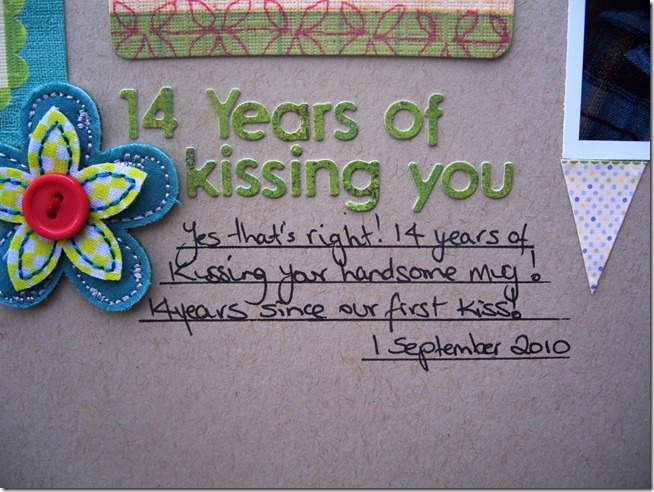 14 Years of
kissing you
Yes that's right! 14 years of
Kissing your handsome mug!
14 years since our first kiss!
1 September 2010